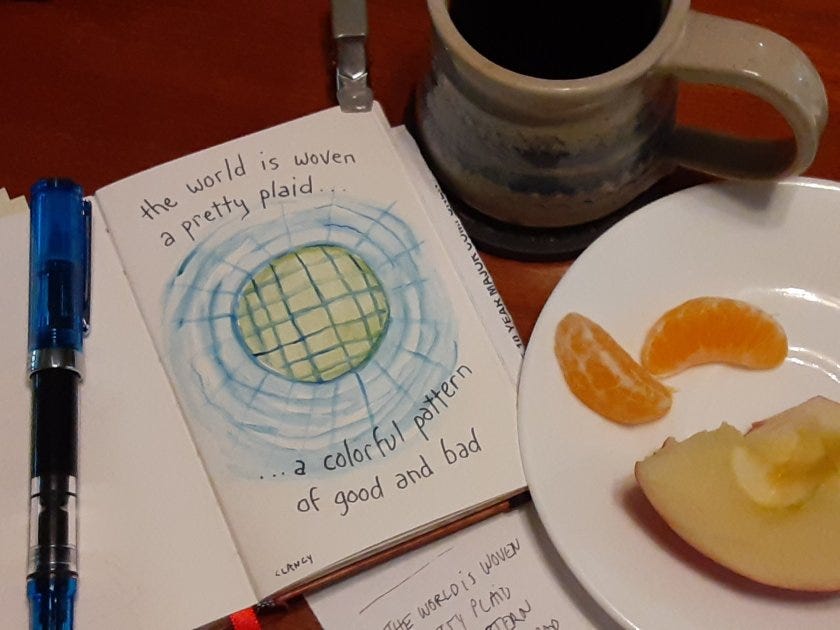 the world is woven
a pretty plaid...
...a colorful pattern
of good and bad
CLANCY
10 YEAR MAJOR
THE WORLD IS WOVEN
PLAID